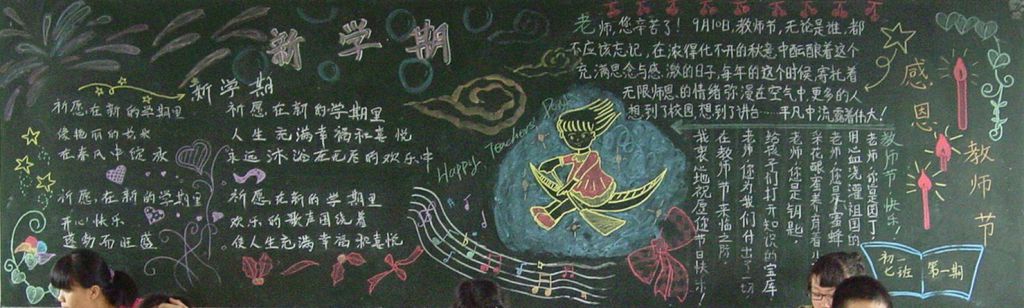 新学期
新学期
祈愿在新的学期里
像艳丽的花朵
在春风中绽放
祈愿在新的学期里
人生充满幸福和喜悦
永远沐浴在无尽的欢乐中
祈愿在新的学期里
开心快乐
祈愿在新的学期里
欢乐的歌声围绕着
使人生充满幸福和喜悦
Happy Teachers' Day
老师,您辛苦了!9月10,教师节,无论是谁,都
不应该忘记,在浓得化不开的秋意中酝酿着这个
充满思念与感激的日子,每年的这个时候,寄托着
无限师恩的情绪弥漫在空气中更多的人
想到了校园,想到了讲台……平凡中流露着伟大!
感恩
教师节
教师节快乐!
老师,你是园丁,
用血浇灌祖国的
老师,您是蜜蜂
老师,您是钥匙,
给孩子们打开知识的宝库
老师,您为我们付出了一切
在教师节来临之际,
我衷心地祝愿您节日快乐!
初一
七班
第一期